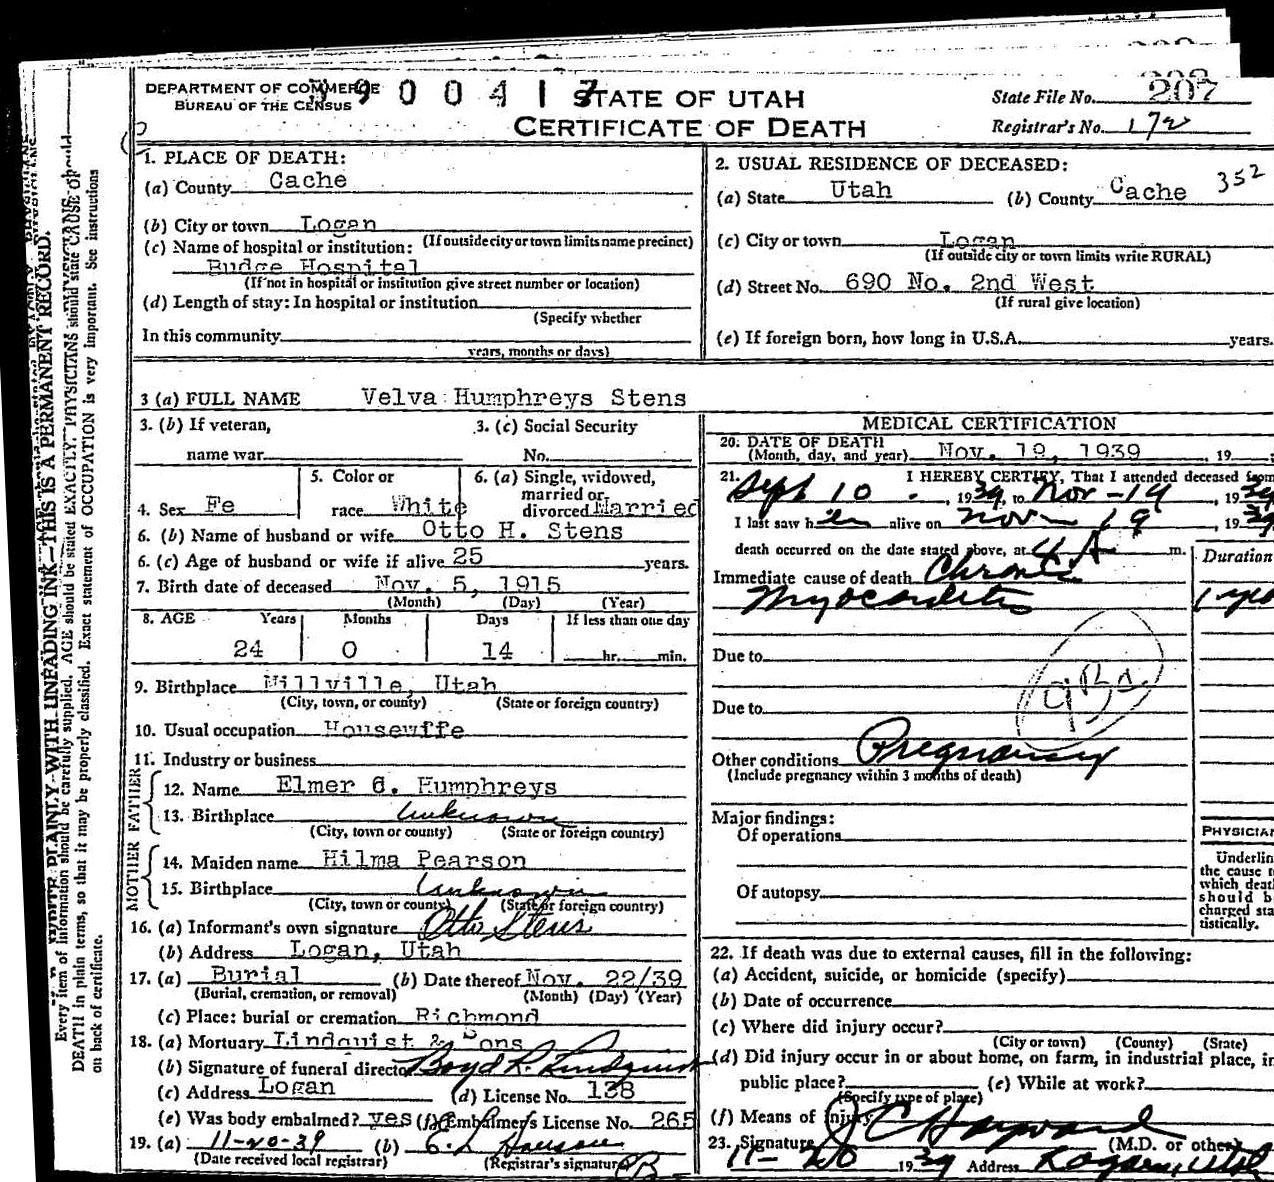 DEPARTMENT OF COMMERCE
BUREAU OF THE CENSUS
3900417
STATE OF UTAH
CERTIFICATE OF DEATH
State File No. 207
Registrar's No. 172
1. PLACE OF DEATH:
(a) County Cache
(b) City or town Logan
(If outside city or town limits name precinct)
(c) Name of hospital or institution:
Budge Hospital
(If not in hospital or institution give street number or location)
(d) Length of stay: In hospital or institution
(Specify whether
In this community
years, months or days)
2. USUAL RESIDENCE OF DECEASED:
(a) State Utah (b) County Cache 352
(c) City or town Logan
(If outside city or town limits write RURAL)
(d) Street No. 690 No. 2nd West
(If rural give location)
(e) If foreign born, how long in U.S.A. years.
3 (a) FULL NAME Velva Humphreys Stens
3. (b) If veteran,
name war
3. (c) Social Security
No.
4. Sex Fe
5. Color or
race White
6. (a) Single, widowed,
married or
divorced Married
6. (b) Name of husband or wife Otto H. Stens
6. (c) Age of husband or wife if alive 25 years.
7. Birth date of deceased Nov. 5, 1915
(Month) (Day) (Year)
8. AGE Years Months Days If less than one day
24 0 14 hr. min.
9. Birthplace Millville, Utah
(City, town, or county) (State or foreign country)
10. Usual occupation Housewife
11. Industry or business
FATHER
12. Name Elmer G. Humphreys
13. Birthplace unknown
(City, town or county) (State or foreign country)
MOTHER
14. Maiden name Hilma Pearson
15. Birthplace Unknown
(City, town or county) (State or foreign country)
16. (a) Informant's own signature Otto Stens
(b) Address Logan, Utah
17. (a) Burial (b) Date thereof Nov. 22/39
(Burial, cremation, or removal) (Month) (Day) (Year)
(c) Place: burial or cremation Richmond
18. (a) Mortuary Lindquist & Sons
(b) Signature of funeral director Boyd R. Lindquist
(c) Address Logan (d) License No. 138
(e) Was body embalmed? yes (f) Embalmer's License No. 265
19. (a) 11-20-39 (b)
(Date received local registrar) (Registrar's signature)
MEDICAL CERTIFICATION
20. DATE OF DEATH
(Month, day, and year) Nov. 19, 1939, 19
21. I HEREBY CERTIFY, That I attended deceased from
Sept 10, 1939, to Nov-19, 1939
I last saw her alive on Nov 19, 1939
death occurred on the date stated above, at 4 A m.
Duration
Immediate cause of death Chronic
Myocarditis
Due to
Due to
Other conditions Pregnancy
(Include pregnancy within 3 months of death)
Major findings:
Of operations
Of autopsy
PHYSICIAN
Underlin
the cause t
which deat
should b
charged sta
tistically.
22. If death was due to external causes, fill in the following:
(a) Accident, suicide, or homicide (specify)
(b) Date of occurrence
(c) Where did injury occur?
(City or town) (County) (State)
(d) Did injury occur in or about home, on farm, in industrial place, in
public place? (e) While at work?
(Specify type of place)
(f) Means of injury
23. Signature J C Hayward (M.D. or other)
11-20 1939 Address Logan, Utah
WRITE PLAINLY WITH UNFADING INK—THIS IS A PERMANENT RECORD.
Every item of information should be carefully supplied. AGE should be stated EXACTLY. PHYSICIANS should state CAUSE OF
DEATH in plain terms, so that it may be properly classified. Exact statement of OCCUPATION is very important. See instructions
on back of certificate.